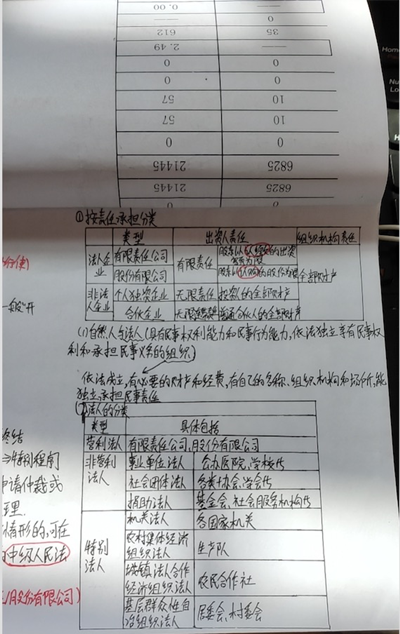 0.00
612 35
2.49
0 0
57 10
57 10
0 0
21445 6825
21445 6825
0 0
①按责任承担分类
类型 出资人责任 组织机构责任
法人企业 有限责任公司 有限责任 股东以认缴的出资额为限
股份有限公司 全部财产
非法人企业 个人独资企业 无限责任 投资人的全部财产
合伙企业 无限连带 普通合伙人的全部财产
(1)自然人与法人(具有民事权利能力和民事行为能力,依法独立享有民事权
利和承担民事义务的组织)
依法成立,有必要的财产和经费,有自己的名称、组织机构和场所,能
独立承担民事责任
法人的分类
类型 具体包括
营利法人 有限责任公司,股份有限公司
非营利法人 事业单位法人 公办医院,学校等
社会团体法人 各类协会,学会等
捐助法人 基金会,社会服务机构等
特别法人 机关法人 各国家机关
农村集体经济组织法人 生产队
城镇法合作经济组织法人 农民合作社
基层群众性自治组织法人 居委会,村委会
一般开
终结
特别程序
申请仲裁或
情形的,可在
中级人民法
股份有限公司)